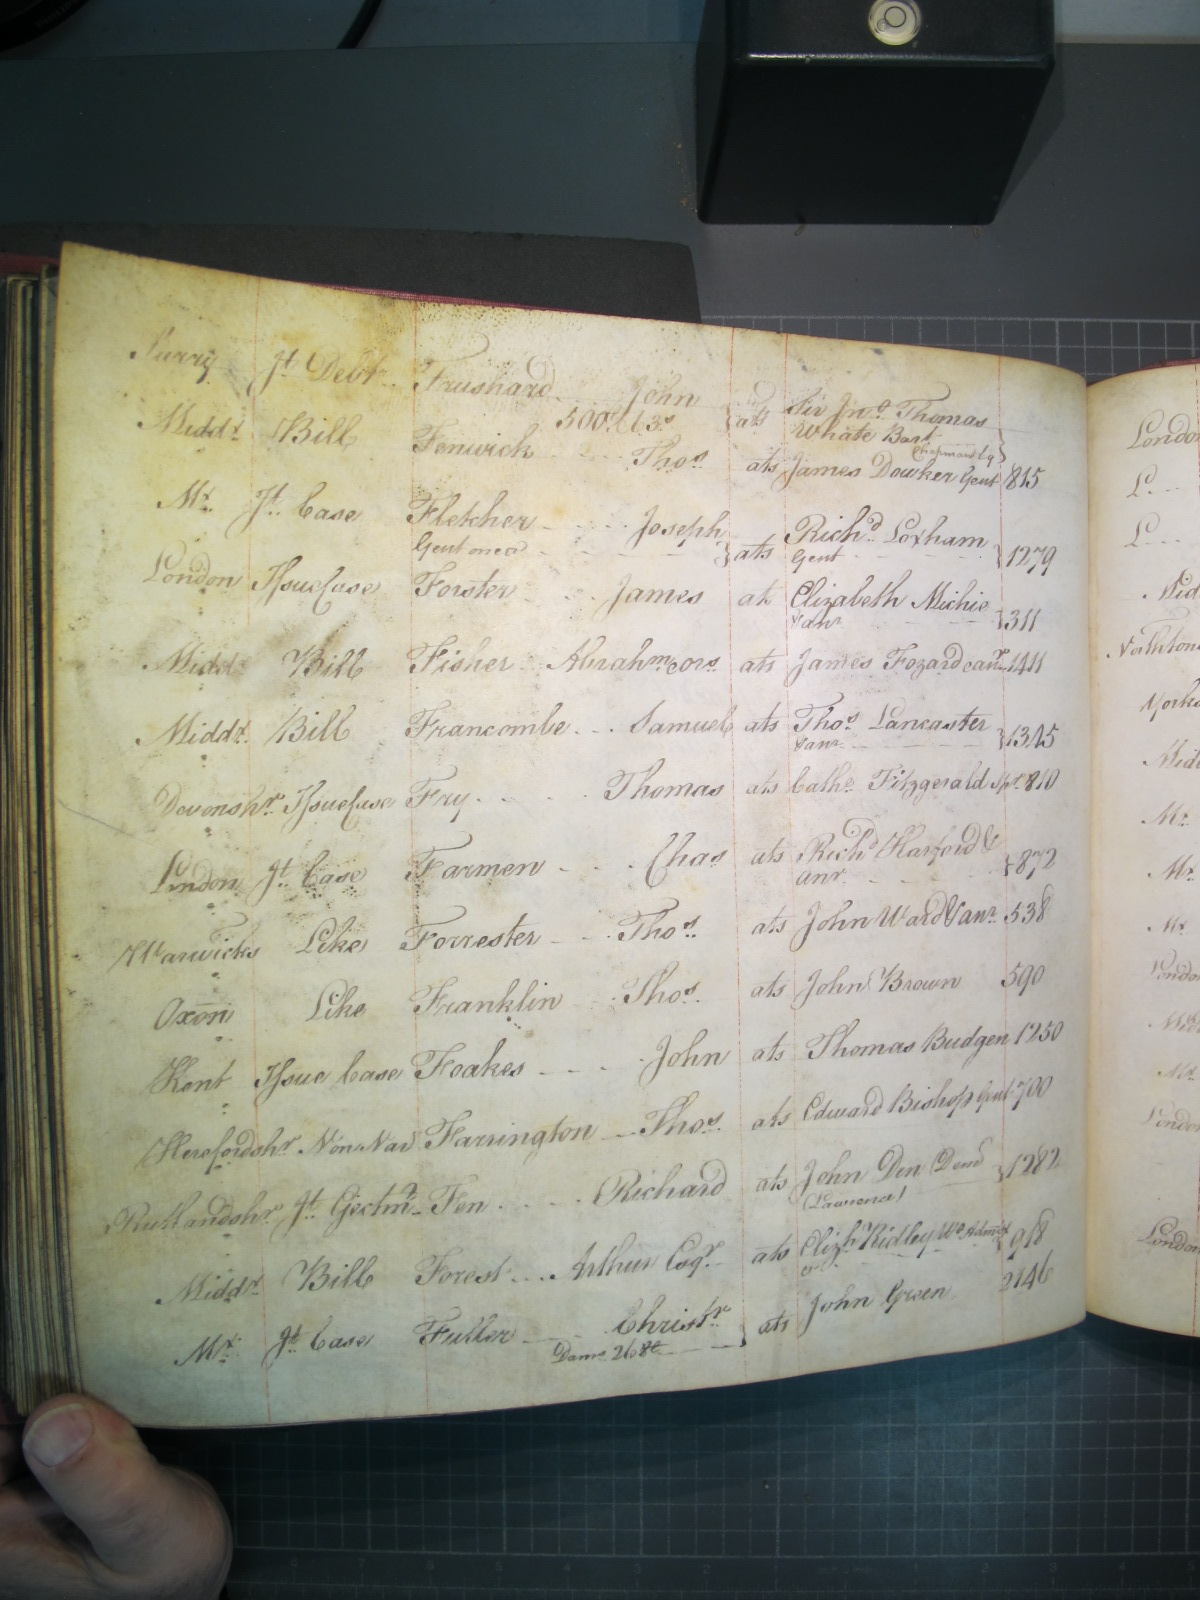 Surry Jt. Debt Frushard John } ats Sir Jno. Thomas
500£ 63s Whate Bart
Chapman Esq }
Middx Bill Fenwick Thos. ats James Dowker Gent 815
Mx. Jt. Case Fletcher Joseph } ats Richd. Loxham } 1279
Gent one &c Gent
London Issue Case Forster James at Elizabeth Michie } 311
& anr
Midd Bill Fisher Abrahm & ors ats James Fozard & anr 1411
Middx. Bill Francombe Samuel ats Thos. Lancaster } 1345
& anr
Devonshr Issue Case Fry Thomas ats Cathe. Fitzgerald Spr 810
London Jt. Case Farmen Chas ats Richd Harford & } 872
anr.
Warwicks Like Forrester Thos. ats John Ward & anr 538
Oxon Like Franklin Thos. ats John Brown 590
Kent Issue Case Foakes John ats Thomas Budgen 1250
Herefordshr Non Nar Farrington Thos. ats Edward Bishop Gent 700
Rutlandshr Jt. Ejectmt. Fen Richard ats John Den Demd } 1282
(Lawrence)
Middx Bill Forest Arthur Esqr ats Elizh Ridley Wo. Admx } 918
Mx. Jt Case Fuller Christr } ats John Green 2146
Dams 260£
London
L
L
Mid
Northton
Yorks
Midd
Mx.
Mx.
Mx
London
Mx
Mx.
London
London